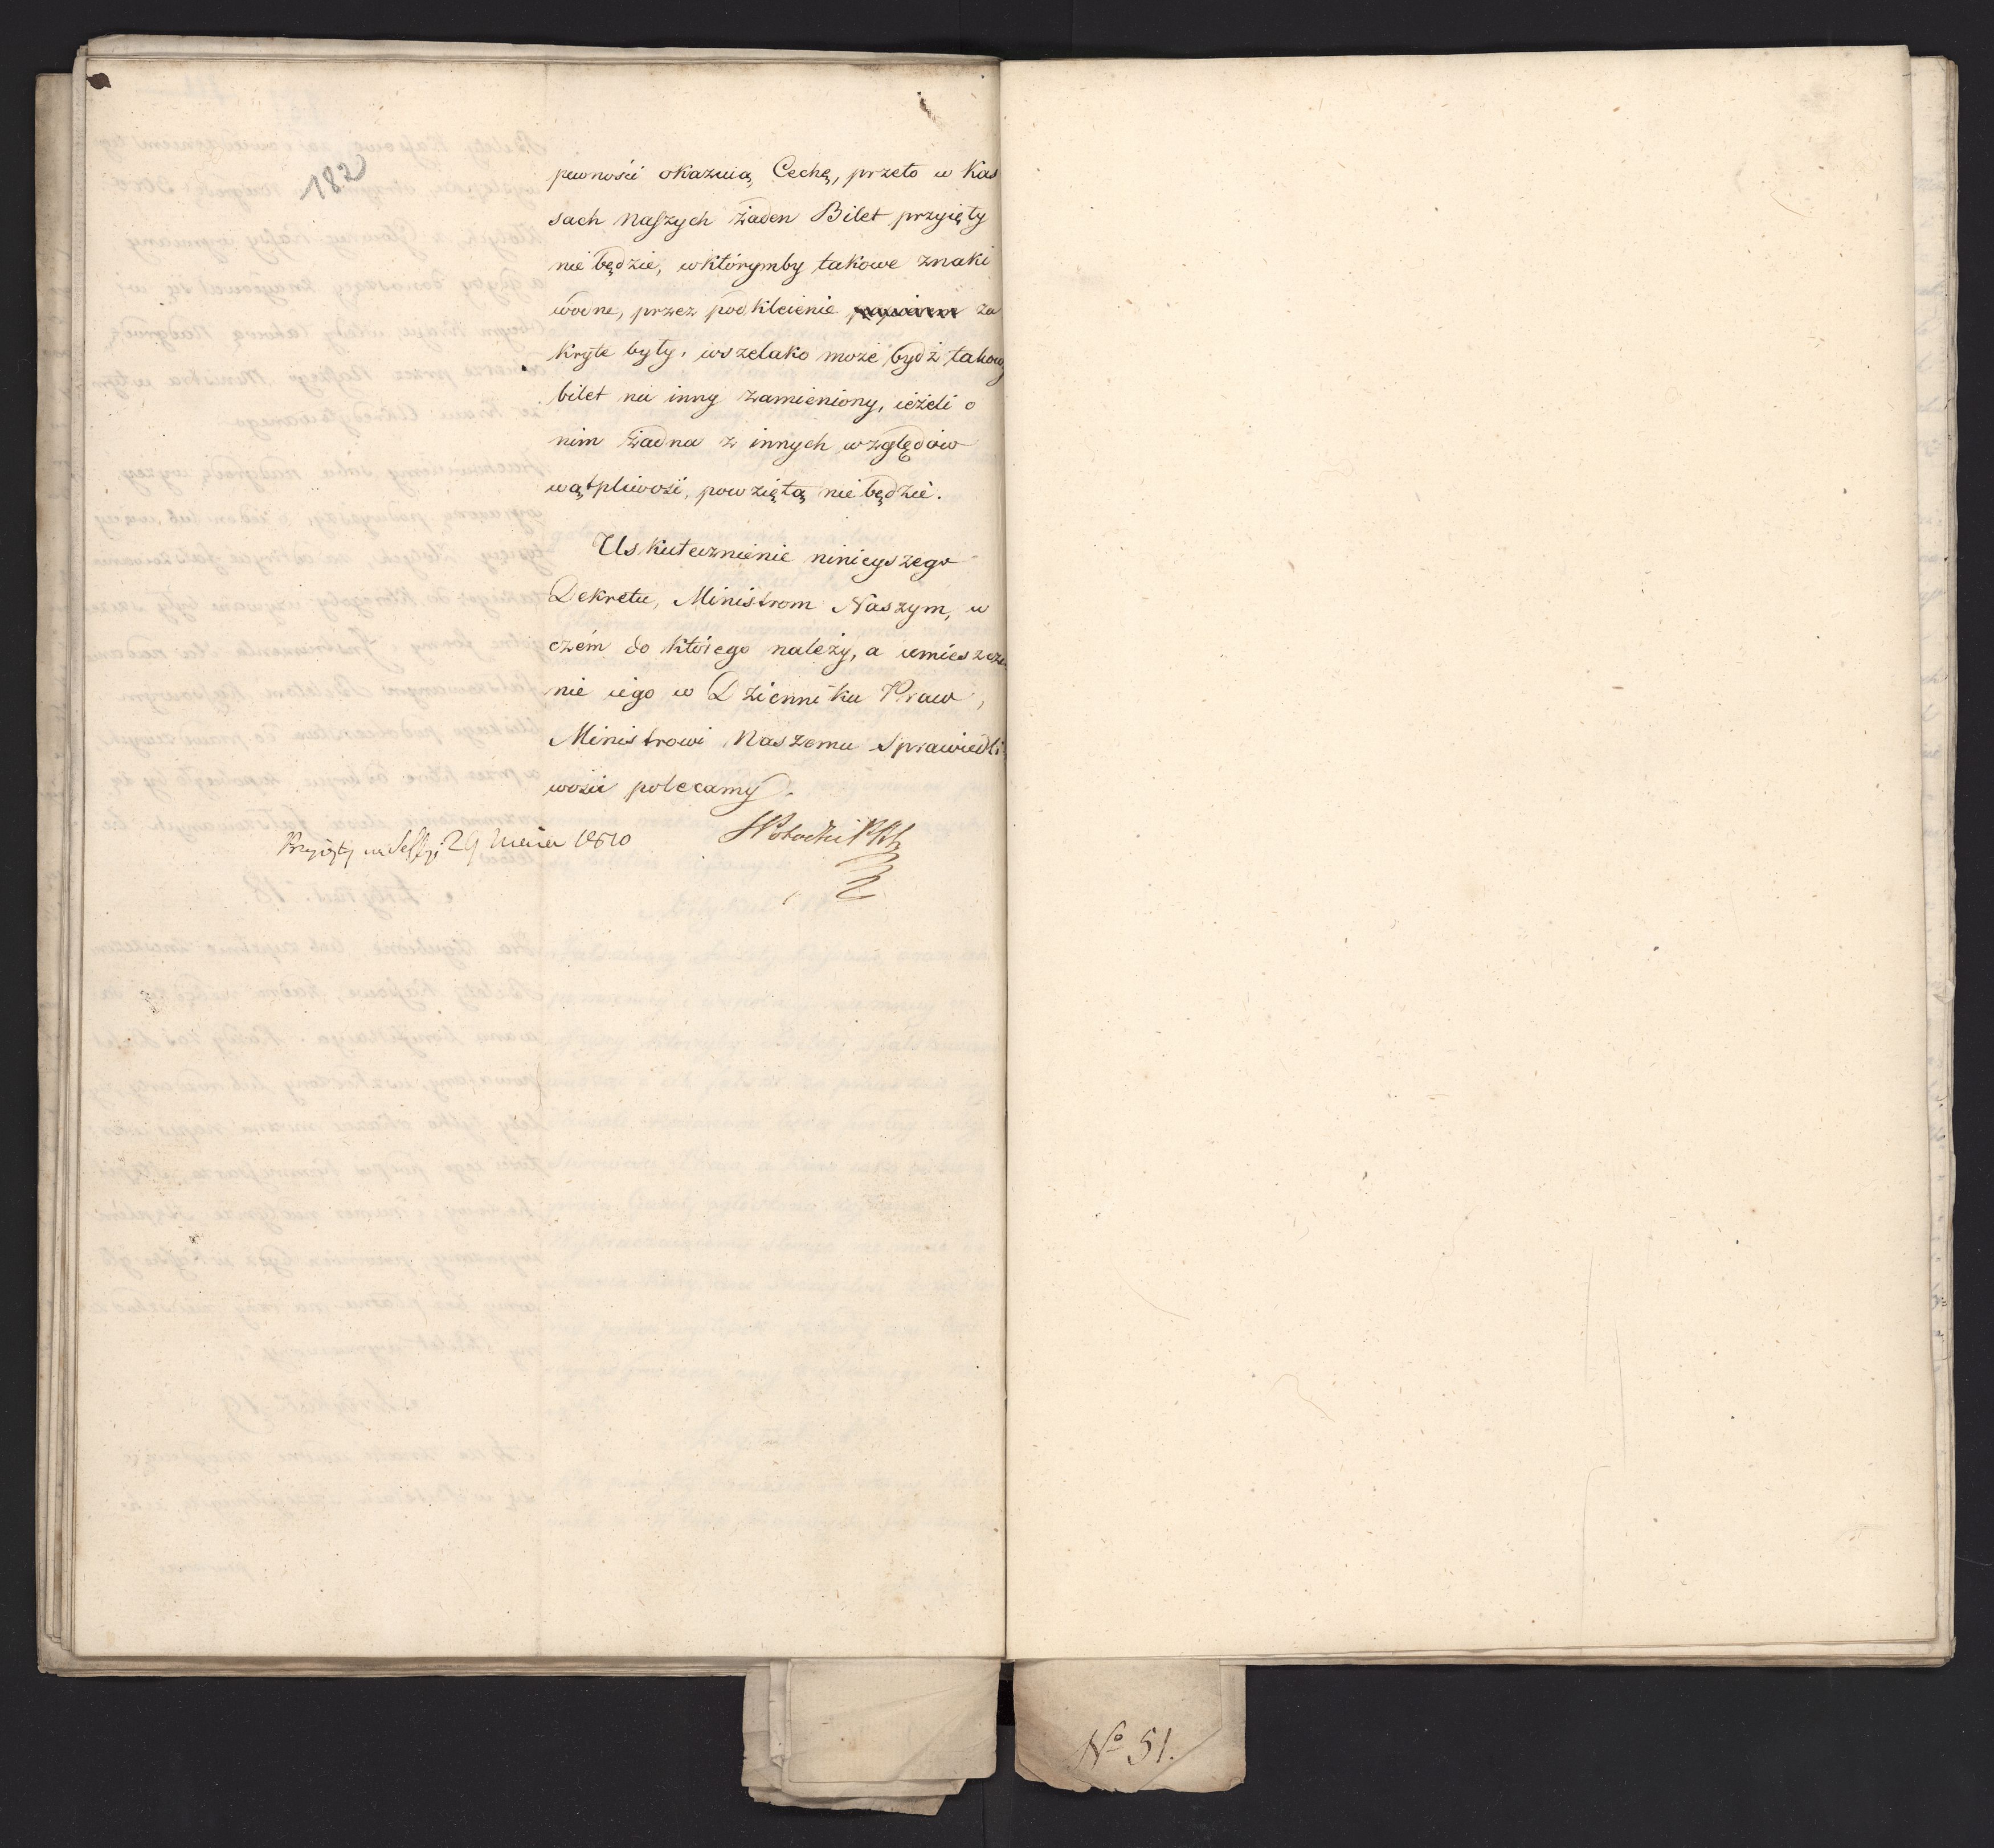 182
pewności okazuią Cechę, przeto w Kas
sach Naszych żaden Bilet przyięty
nie będzie, w którymby takowe znaki
wodne, przez podkleienie za
kryte były, wszelako może bydź takowy
bilet na inny zamieniony, ieżeli o
nim żadna z innych względów
wątpliwość, powziętą nie będzie.
Uskutecznienie ninieyszego
Dekretu, Ministrom Naszym, w
czém do którego należy, a umieszcze
nie iego w Dzienniku Praw,
Ministrowi Naszemu Sprawiedli
wości polecamy.
Przyięty na Sessyi 29 maia 1810
SPotocki
No 51.